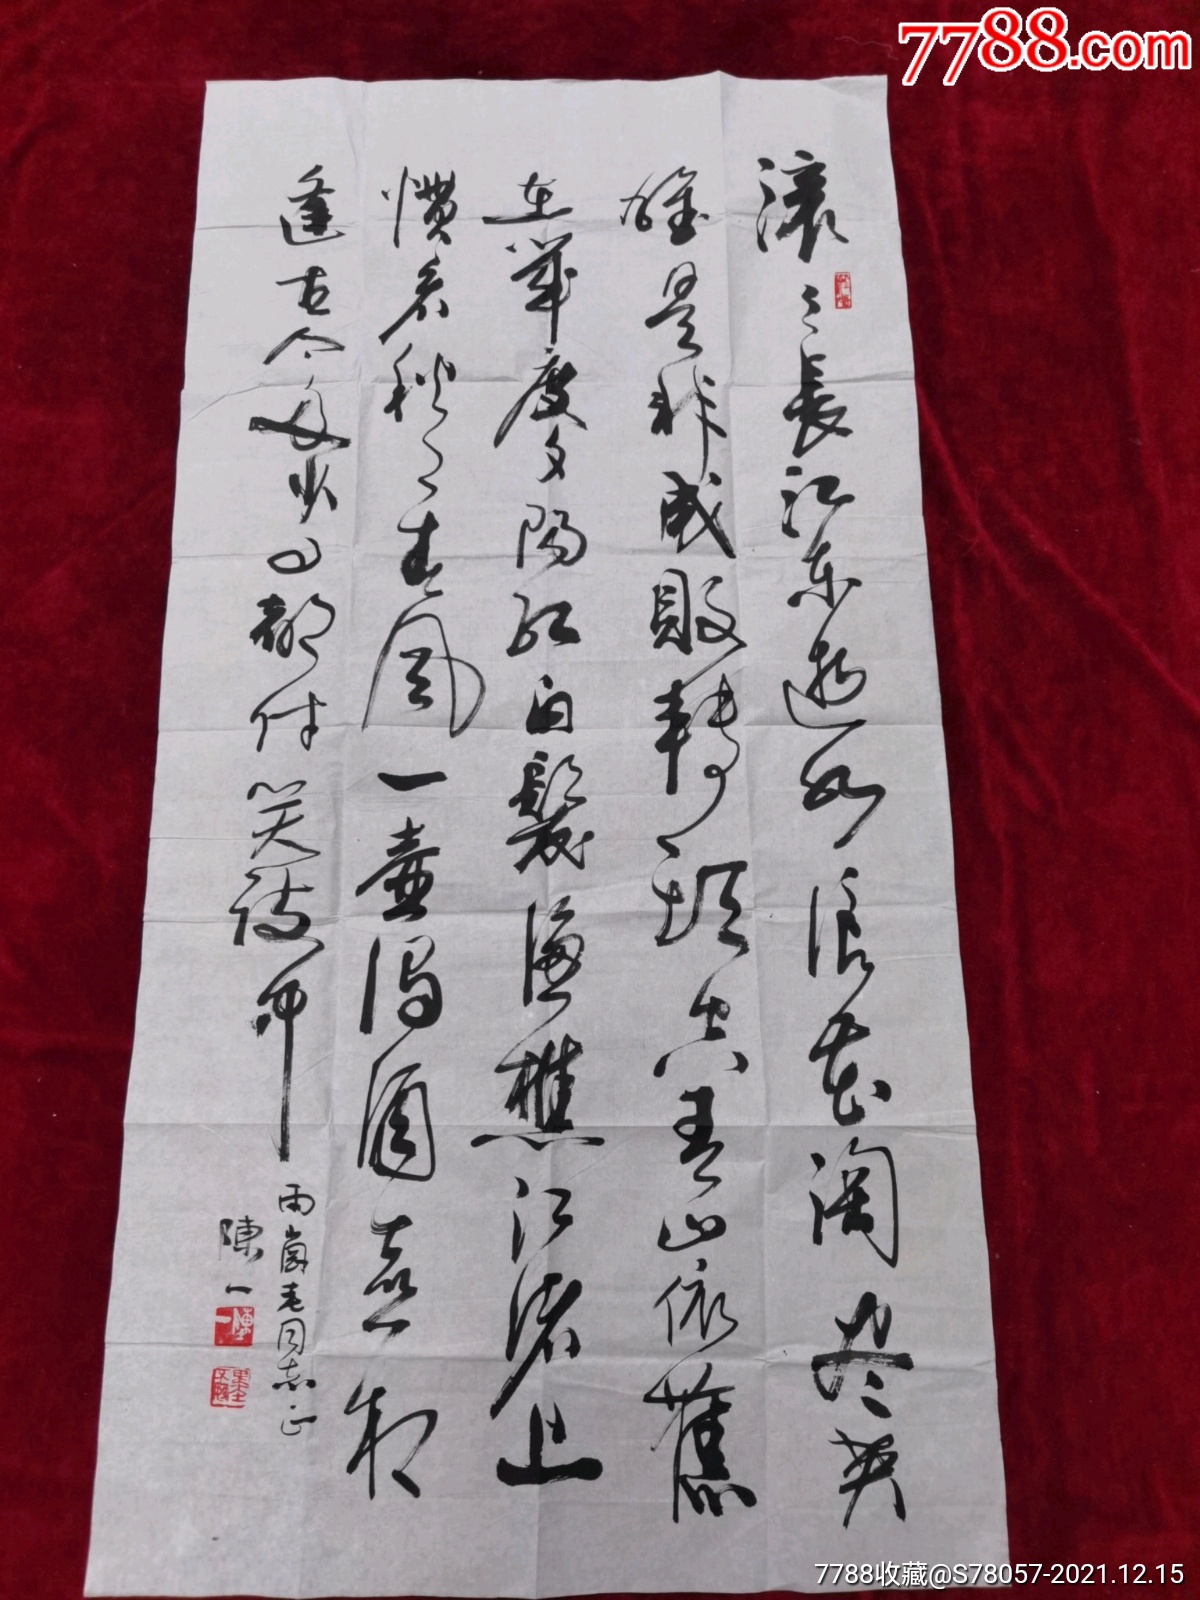 7788.com
滚〻長江东逝水浪花淘尽英
雄是非成敗轉頭空青山依舊
在幾度夕陽红白髮渔樵江渚上
惯看秋月春風一壶濁酒喜相
逢古今多少事都付笑談中
雨崗老同志正
陳一
陳一
7788收藏@S78057-2021.12.15